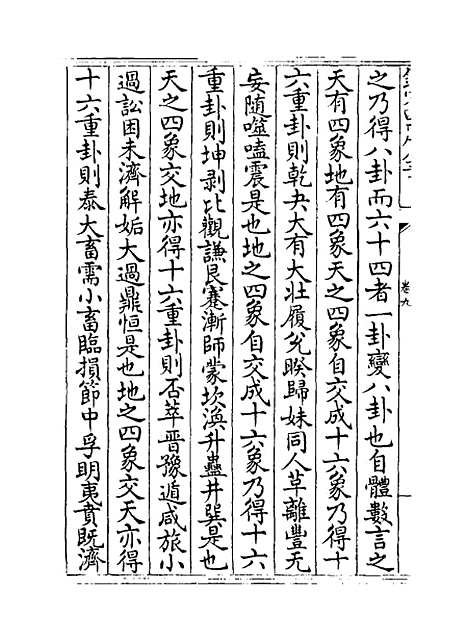 之乃得八卦而六十四者一卦變八卦也自體數言之
天有四象地有四象天之四象自交成十六象乃得十
六重卦則乾夬大有大壯履兌睽歸妹同人革離豐无
妄隨噬嗑震是也地之四象自交成十六象乃得十六
重卦則坤剥比觀謙艮蹇漸師蒙坎渙升蠱井巽是也
天之四象交地亦得十六重卦則否萃晉豫遁咸旅小
過訟困未濟解姤大過鼎恒是也地之四象交天亦得
十六重卦則泰大畜需小畜臨損節中孚明夷賁既濟
卷九